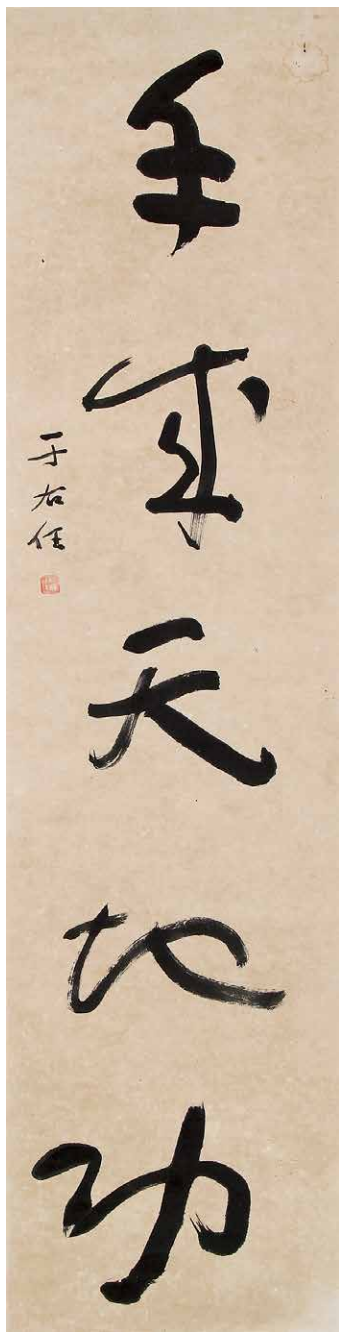 手成天地功
于右任